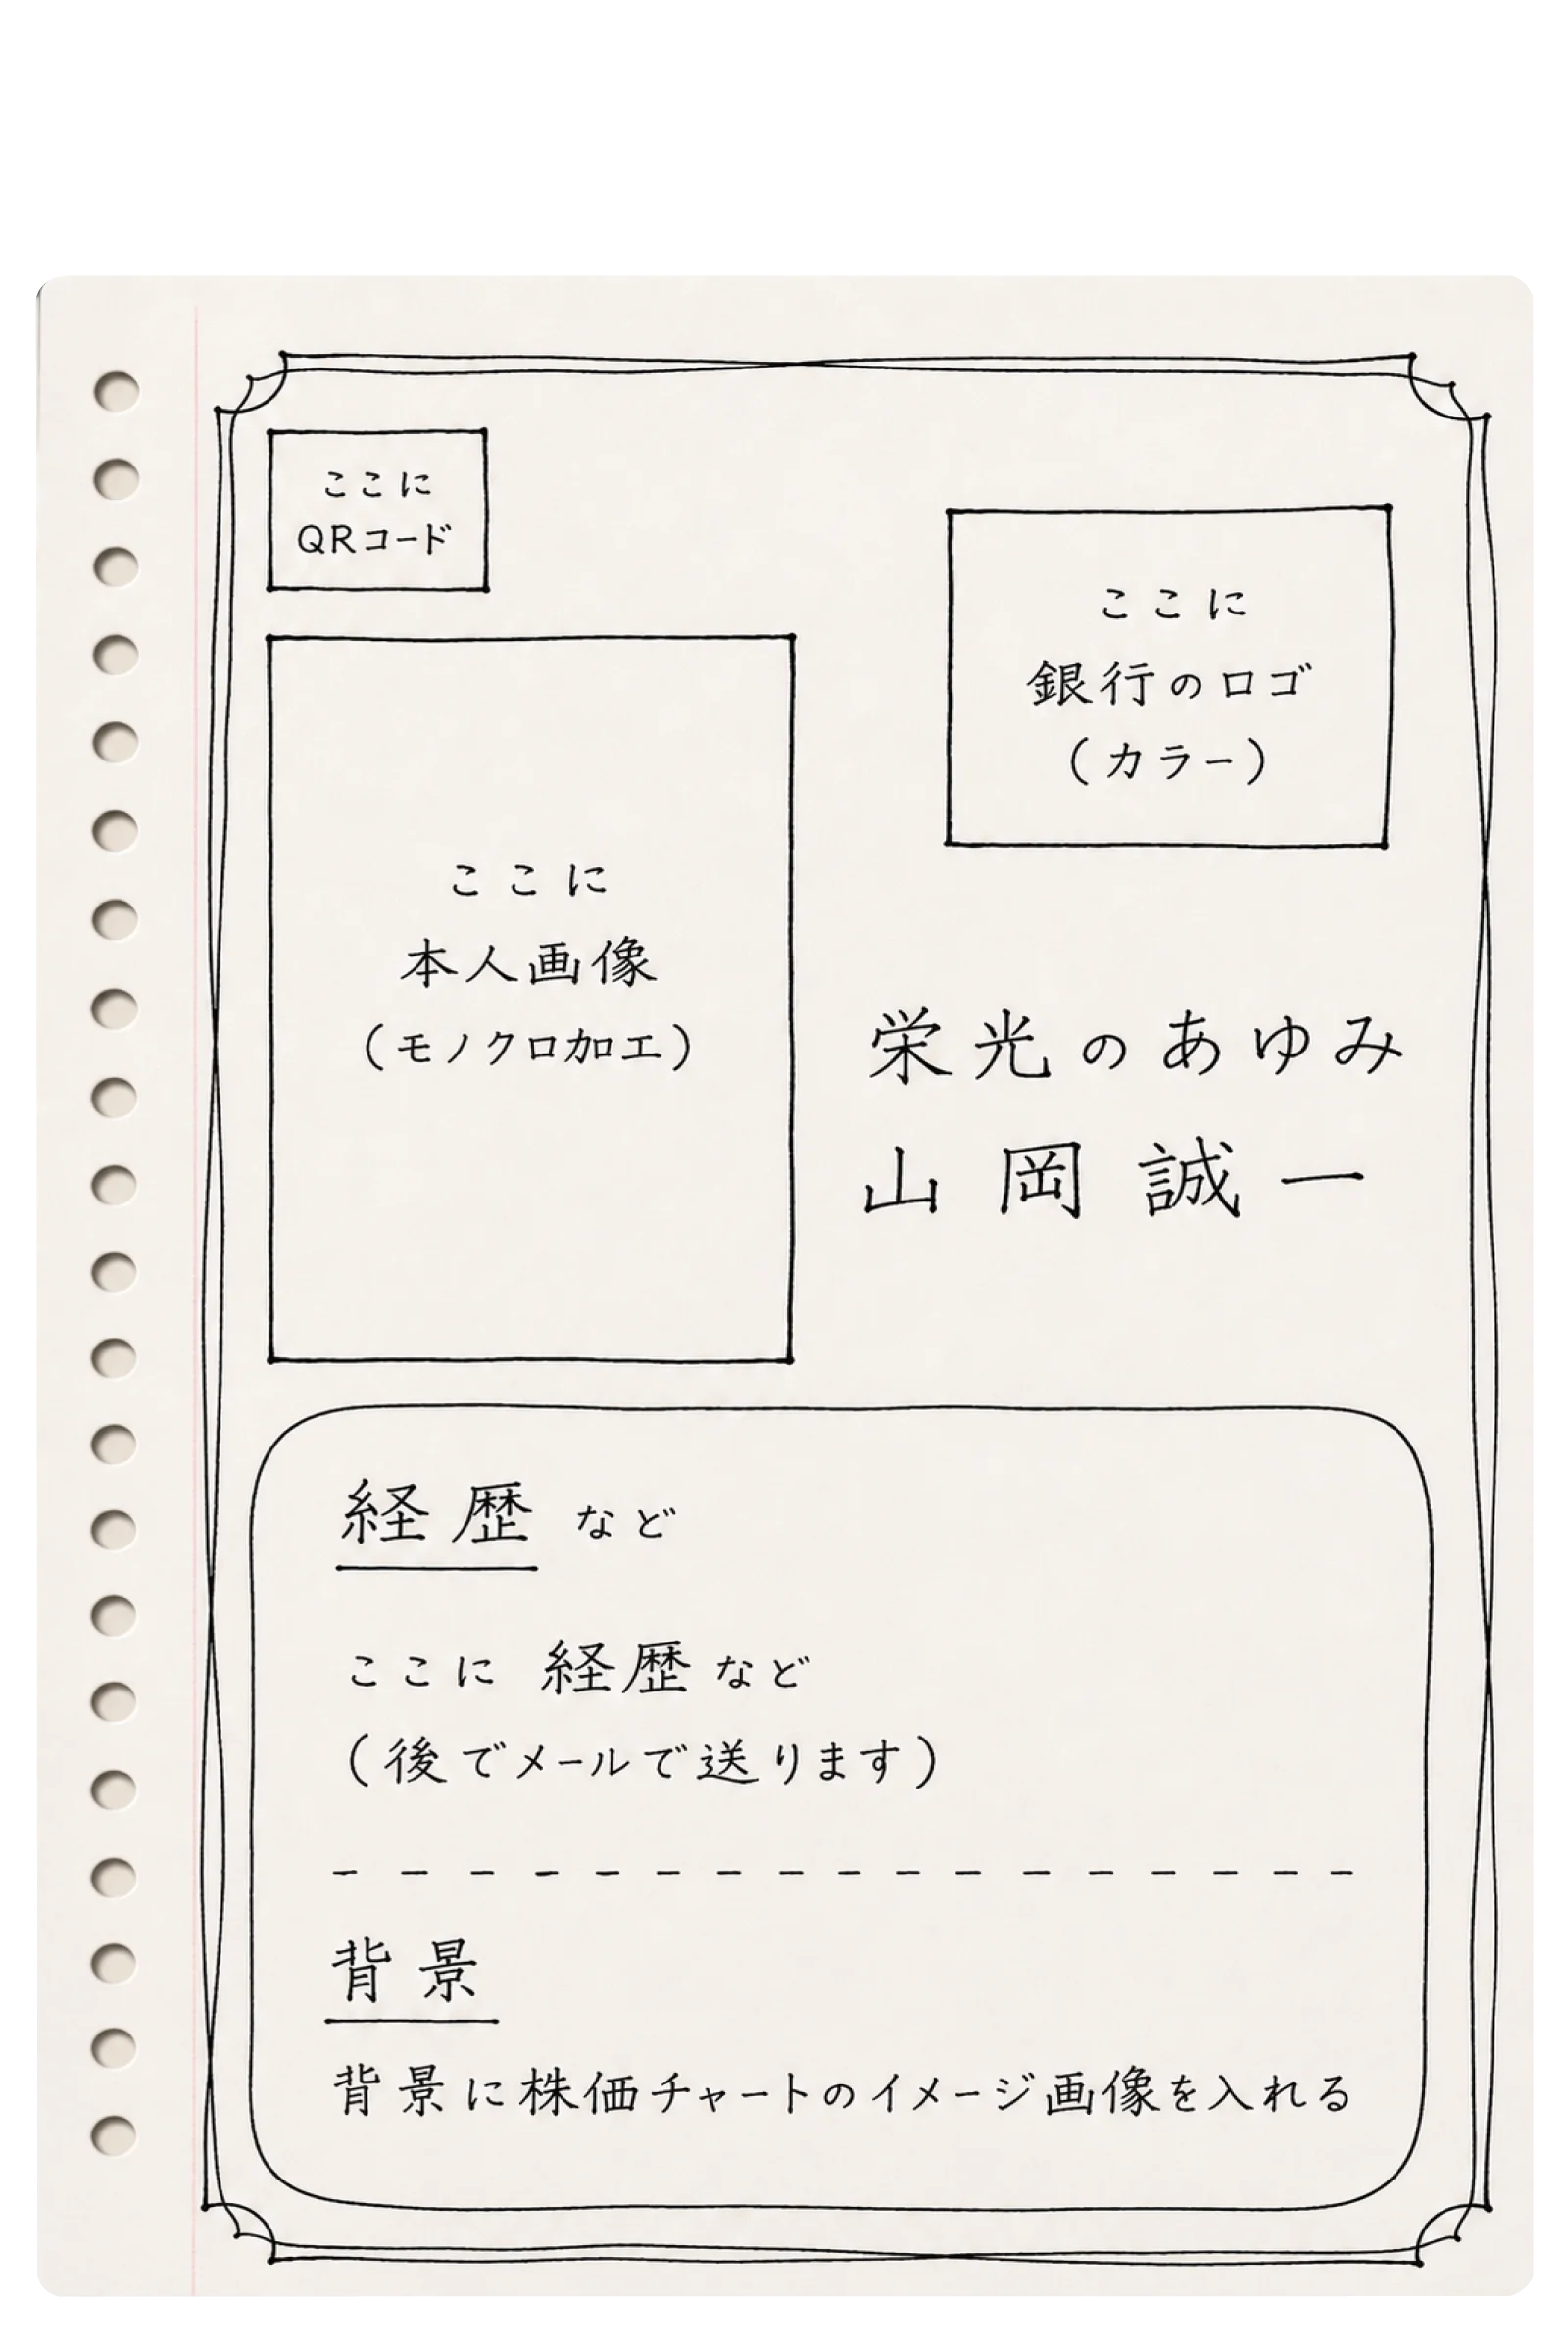 ここに
QRコード
ここに
銀行のロゴ
(カラー)
ここに
本人画像
(モノクロ加工)
栄光のあゆみ
山岡誠一
経歴など
ここに 経歴など
(後でメールで送ります)
背景
背景に株価チャートのイメージ画像を入れる